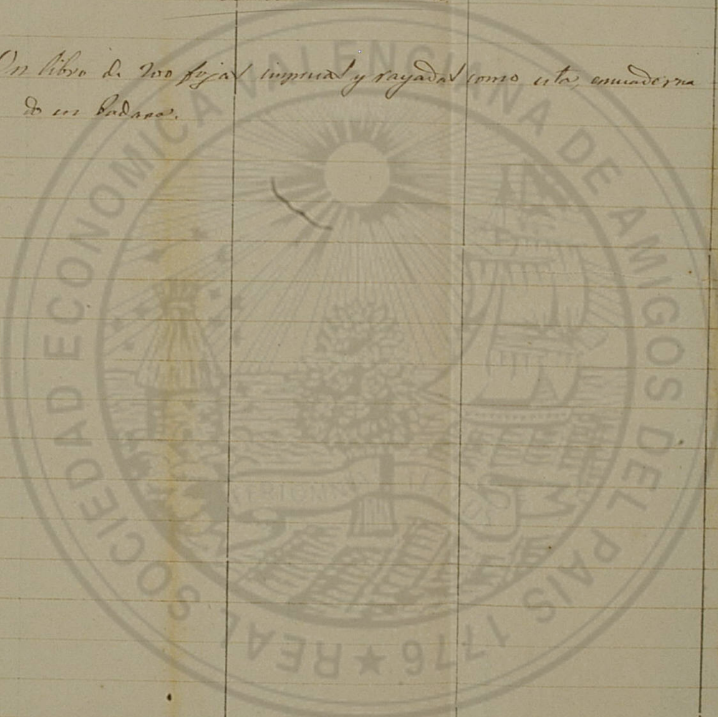 Un libro de 200 fojas impresas y rayadas como esta, encuaderna
do en badana.
REAL SOCIEDAD ECONOMICA VALENCIANA DE AMIGOS DEL PAIS 1776